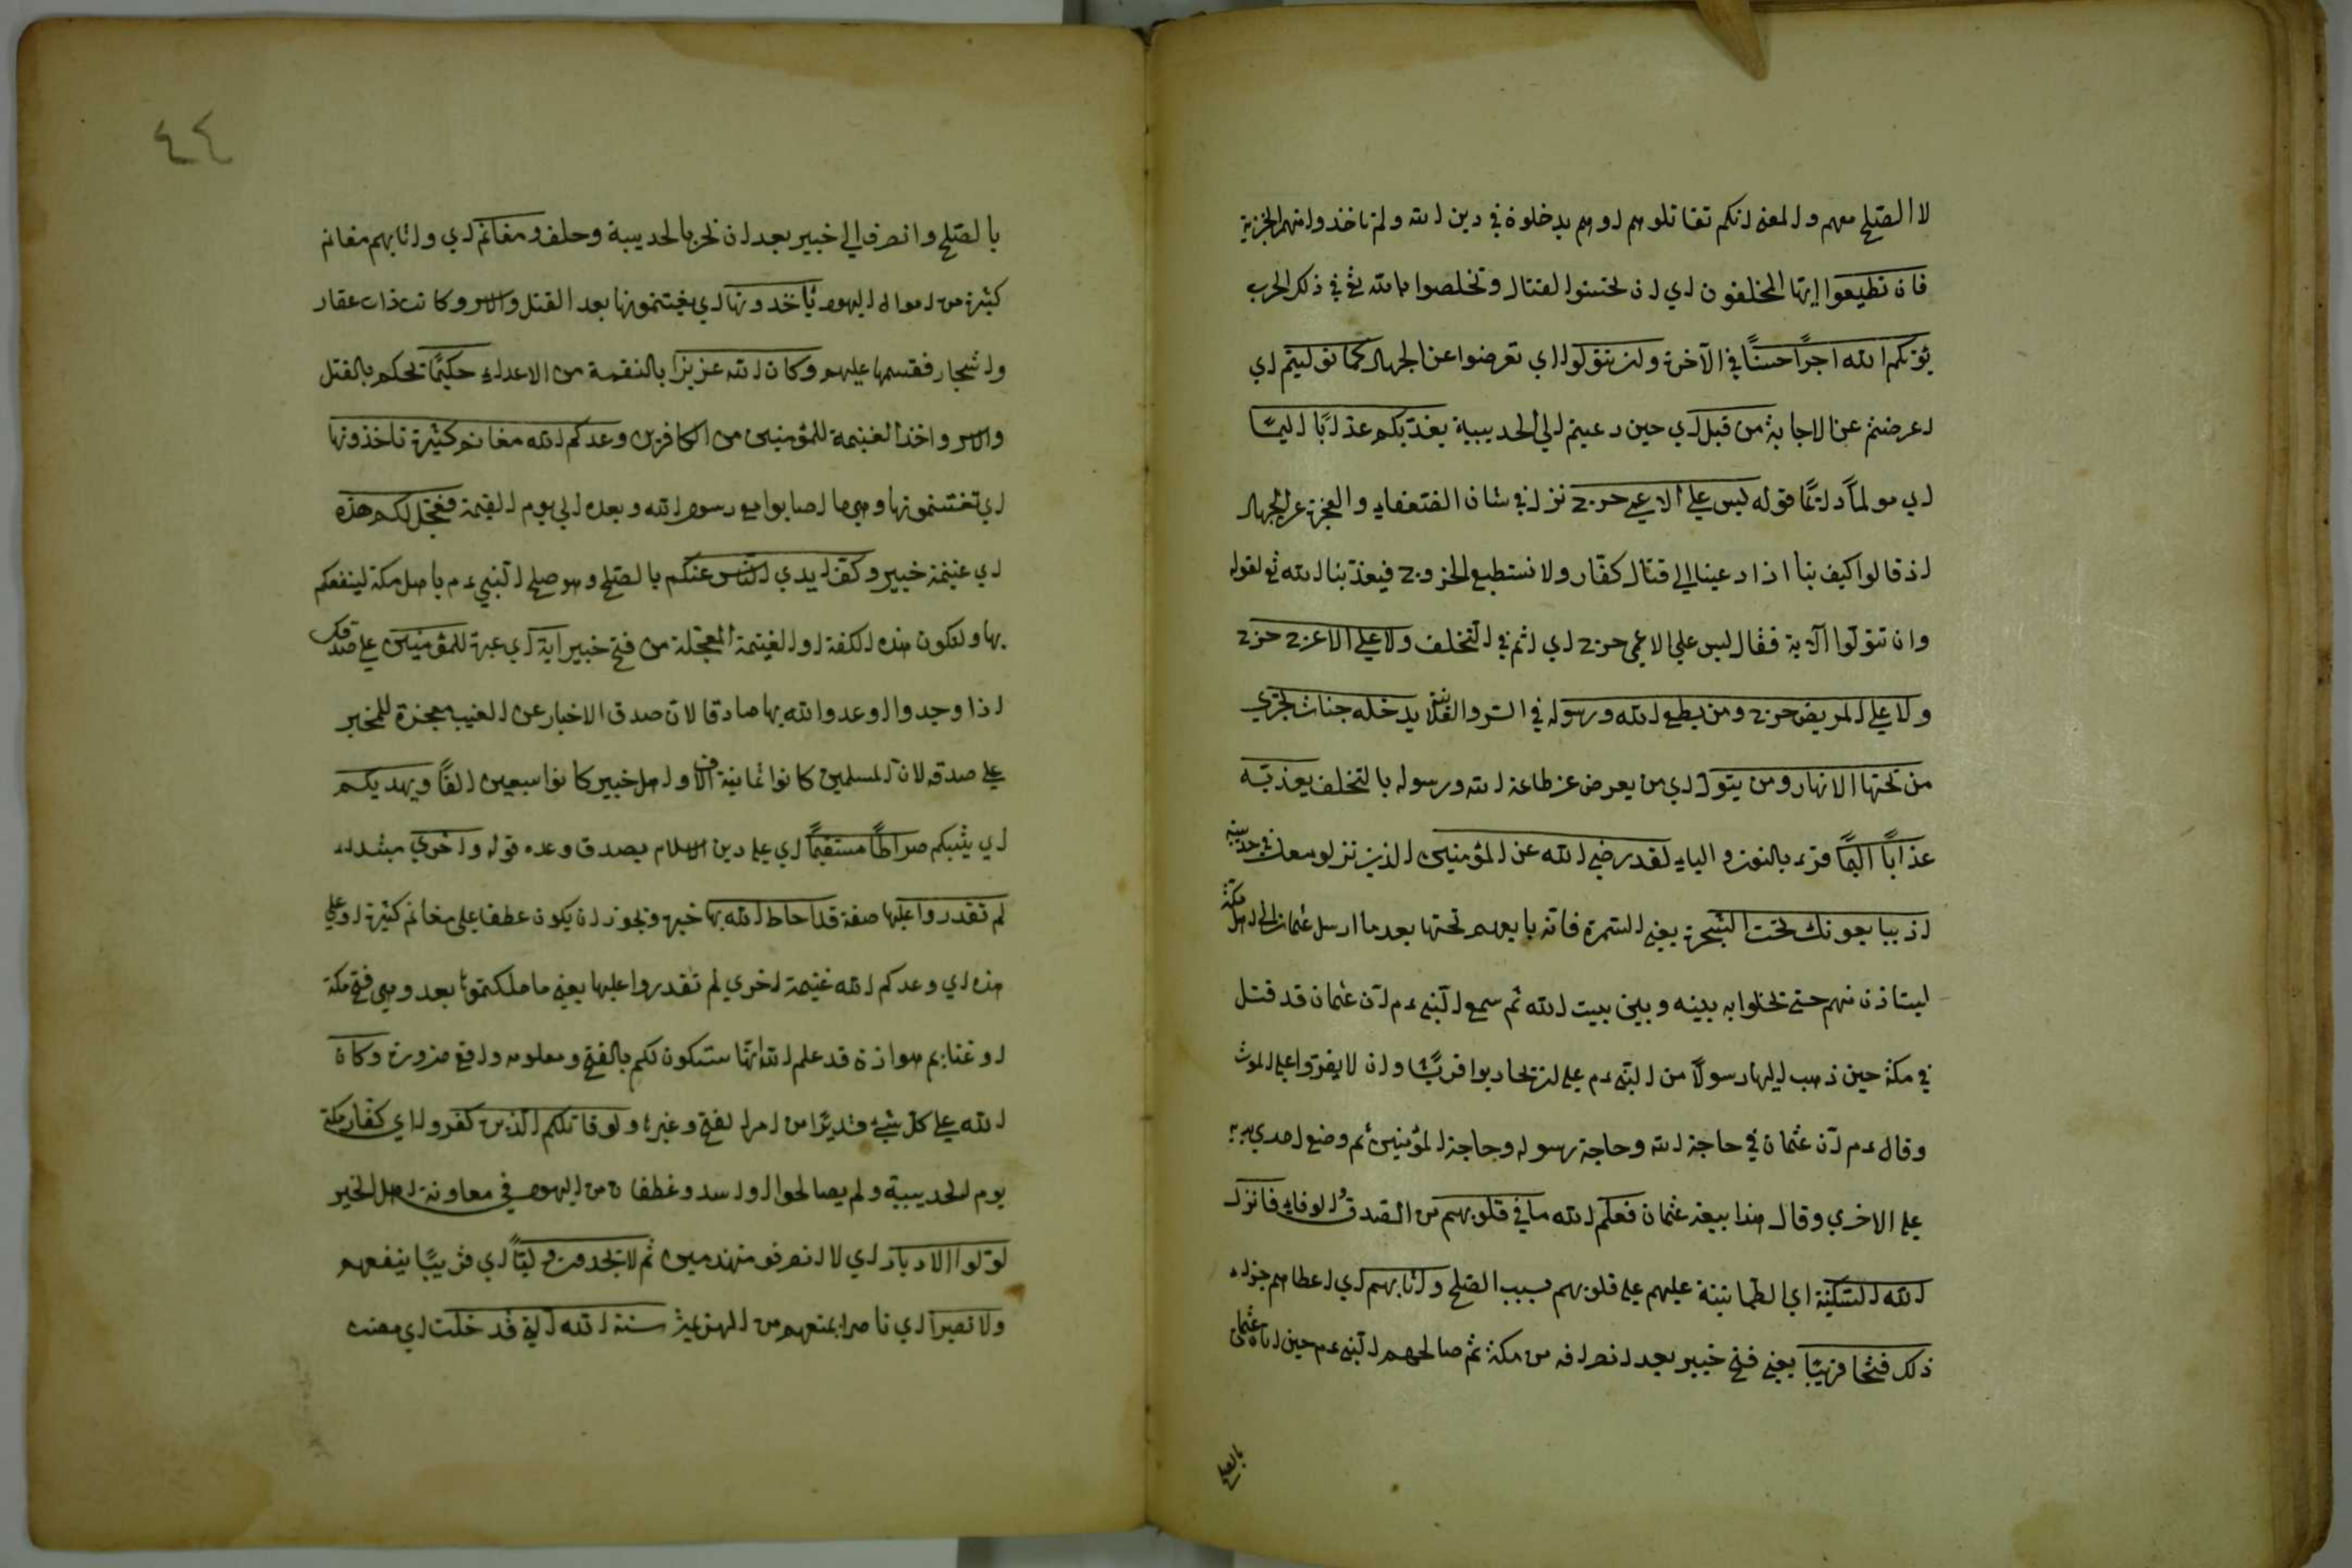 لا الصلح معهم والمعنى انكم تقاتلوهم او هم يدخلوة في دين الله ولم تاخذوا منهم الجزية
فان تطيعوا ايها المخلفون اي ان تحسنوا القتال وتخلصوا لله تع في ذلك الحرب
يؤتكم الله اجرًا حسنًا في الآخرة وان تتولوا اي تعرضوا عن الجهاد كما توليتم اي
اعرضتم عن الاجابة من قبل اي حين دعيتم الى الحديبية يعذبكم عذابًا اليمًا
اي مولمًا دائمًا قوله ليس على الاعمى حرج نزل في شان الضعفاء والعجزة عن الجهاد
اذ قالوا كيف بنا اذا دعينا الى قتال كفار ولا نستطيع الخروج فيعذبنا الله تع لقوله
وان تتولوا الآية فقال ليس على الاعمى حرج اي اثم في التخلف ولا على الاعرج حرج
ولا على المريض حرج ومن يطع الله ورسوله في السر والعلانية يدخله جنات تجري
من تحتها الانهار ومن يتول اي من يعرض عن طاعة الله ورسوله بالتخلف يعذبه
عذابًا اليمًا قرء بالنون والياء لقد رضي الله عن المؤمنين الذين نزلو معك في حديبية
اذ يبايعونك تحت الشجرة يعني السمرة فانه بايعهم تحتها بعد ما ارسل عثمان الى اهل مكة
ليستاذن منهم حتى تخلوا به بينه وبين بيت الله ثم سمع النبي عم ان عثمان قد قتل
في مكة حين ذهب اليها رسولًا من النبي عم على ان يحاربوا قريشًا وان لا يفروا على الموت
وقال عم ان عثمان في حاجة الله وحاجة رسوله وحاجة المؤمنين ثم وضع احدي يديه
على الاخرى وقال هذا بيعة عثمان فعلم الله ما في قلوبهم من الصدق والوفاء فانزل
الله السكينة اي الطمانينة عليهم على قلوبهم بسبب الصلح واثابهم اي اعطاهم جزاء
ذلك فتحًا قريبًا يعني فتح خيبر بعد انصرافه من مكة ثم صالحهم النبي عم حين اتاه عثمان
بالصلح
٤٤
بالصلح وانصرف الى خيبر بعد ان نحر بالحديبية وحلق ومغانم اي واثابهم مغانم
كثيرة من اموال اليهود يأخذونها اي يغتنمونها بعد القتل والاسر وكانت ذات عقار
واشجار فقسمها عليهم وكان الله عزيزًا بالنقمة من الاعداء حكيمًا تحكم بالقتل
والاسر واخذ الغنيمة للمؤمنين من الكافرين وعدكم الله مغانم كثيرة تاخذونها
اي تغتنمونها وهي ما اصابوا مع رسول الله وبعده الى يوم القيمة فعجل لكم هذه
اي غنيمة خيبر وكف ايدي الناس عنكم بالصلح وهو صلح النبي عم باهل مكة لينفعكم
بها ولتكون هذه الكفة او الغنيمة المعجلة من فتح خيبر اية اي عبرة للمؤمنين على صدقك
اذا وجدوا الوعدوا الله بها صادقا لان صدق الاخبار عن الغيب معجزة للمخبر
على صدقه لان المسلمين كانوا ثمانية الاف واهل خيبر كانوا سبعين الفًا ويهديكم
اي يثبكم صراطًا مستقيمًا اي على دين الاسلام بصدق وعده قوله واخرى مبتداء
لم تقدروا عليها صفة قد احاط الله بها خبره ويجوز ان يكون عطفا على مغانم كثيرة او على
هذه اي وعدكم الله غنيمة اخرى لم تقدروا عليها يعني ما ملكتموها بعد وهي فتح مكة
او غنايم هوازن قد علم الله انها ستكون لكم بالفتح ومعلومه واقع ضرورة وكان
الله على كل شيء قديرًا من امر الفتح وغيره ولو قاتلكم الذين كفروا اي كفار مكة
يوم الحديبية ولم يصالحوا او اسد وغطفان من اليهود في معاونة اهل الخيبر
لولوا الادبار اي لا انصرفو منهزمين ثم لا يجدون وليًا اي قريبًا ينفعهم
ولا نصيرا اي ناصرا يمنعهم من الهزيمة سنة الله التي قد خلت اي مضت